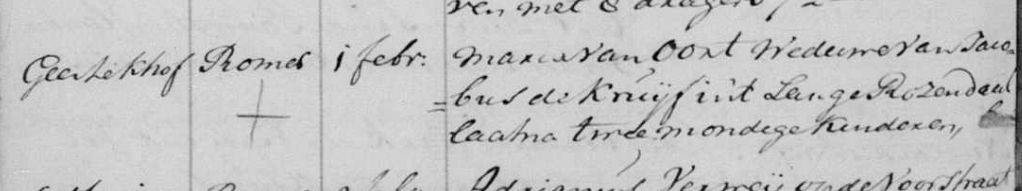 ven met 8 dragers
Geertekhof Romes 1 febr: Maria van Oort Weduwe van Jaco=
=bus de Kruijf int Lange Rozendaal
laatna twee mondege kinderen,
Adrianus Verweij op de Voorstraat